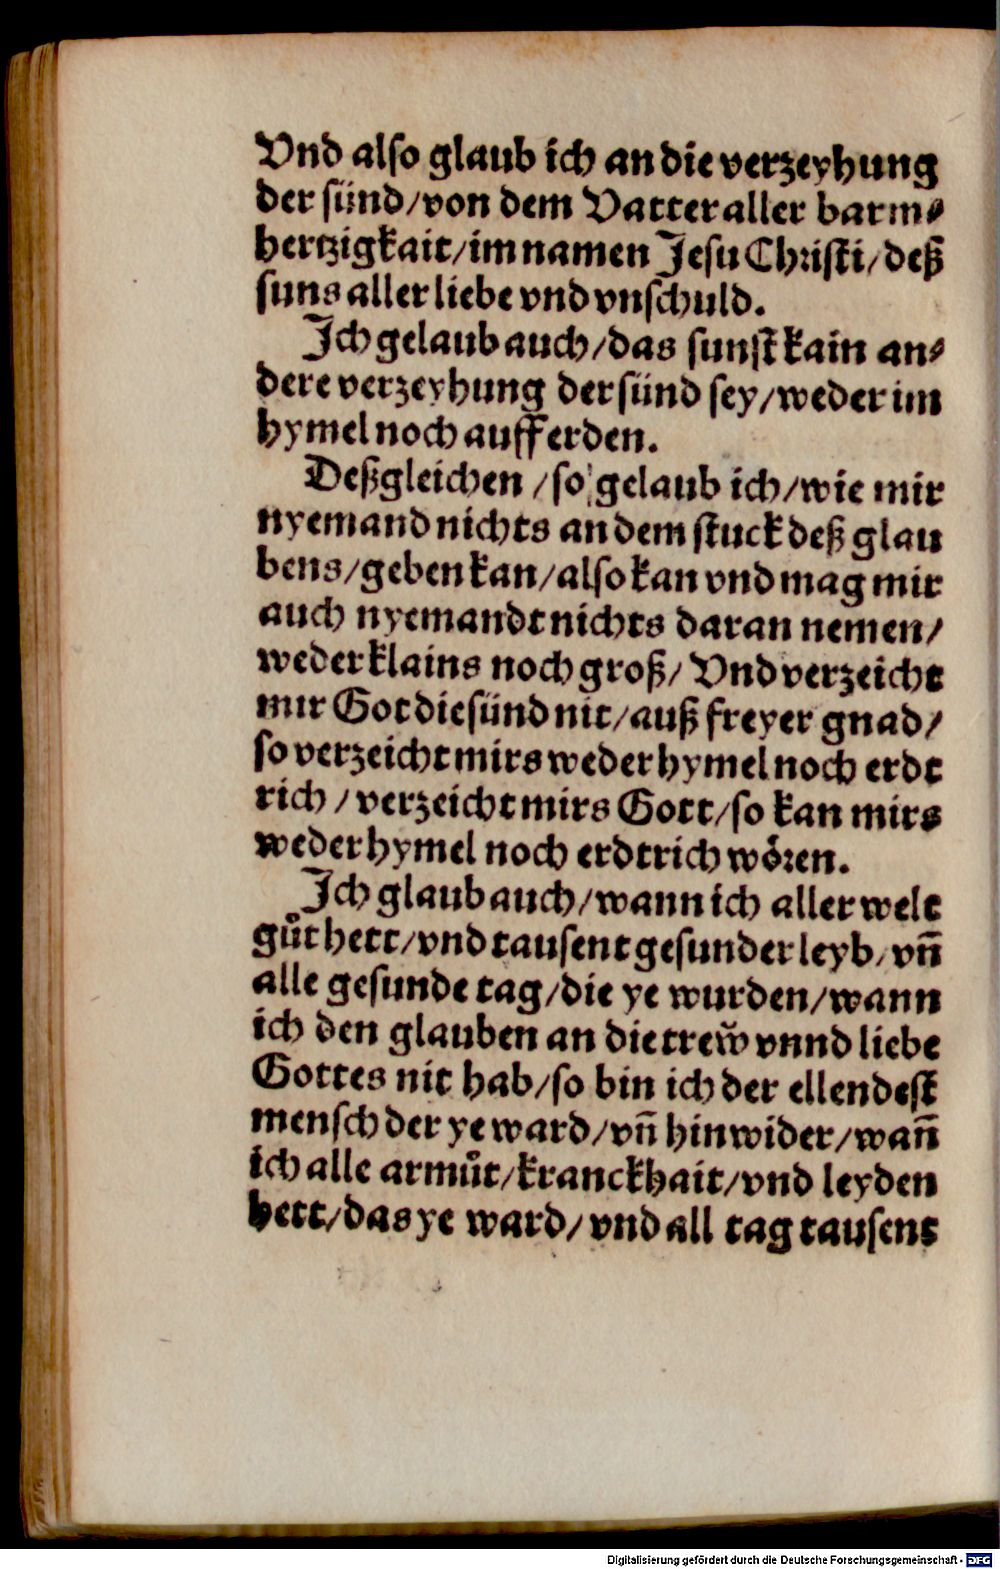 Vnd also glaub ich an die verzeyhung
der sünd/von dem Vatter aller barm⸗
hertzigkait/im namen Jesu Christi/deß
suns aller liebe vnd vnschuld.
Ich gelaub auch/das sunst kain an⸗
dere verzeyhung der sünd sey/weder im
hymel noch auff erden.
Deßgleichen /so gelaub ich/wie mir
nyemand nichts an dem stuck deß glau
bens/geben kan/also kan vnd mag mir
auch nyemandt nichts daran nemen/
weder klains noch groß/ Vnd verzeicht
mir Got die sünd nit/auß freyer gnad/
so verzeicht mirs weder hymel noch erdt
rich / verzeicht mirs Gott/so kan mirs
weder hymel noch erdtrich wören.
Ich glaub auch/wann ich aller welt
gůt hett/vnd tausent gesunder leyb/vñ
alle gesunde tag/die ye wurden/wann
ich den glauben an die trew̃ vnnd liebe
Gottes nit hab/so bin ich der ellendest
mensch der ye ward/vñ hinwider/wañ
ich alle armůt/kranckhait/vnd leyden
hett/das ye ward/vnd all tag tausent
Digitalisierung gefördert durch die Deutsche Forschungsgemeinschaft - DFG